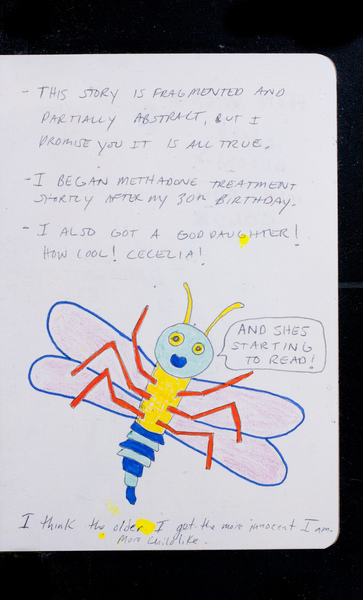 - THIS STORY IS FRAGMENTED AND
PARTIALLY ABSTRACT, BUT I
PROMISE YOU IT IS ALL TRUE.
- I BEGAN METHADONE TREATMENT
SHORTLY AFTER MY 30TH BIRTHDAY.
- I ALSO GOT A GODDAUGHTER!
HOW COOL! CECELIA!
AND SHES
STARTING
TO READ!
I think the older I get the more innocent I am.
More childlike.